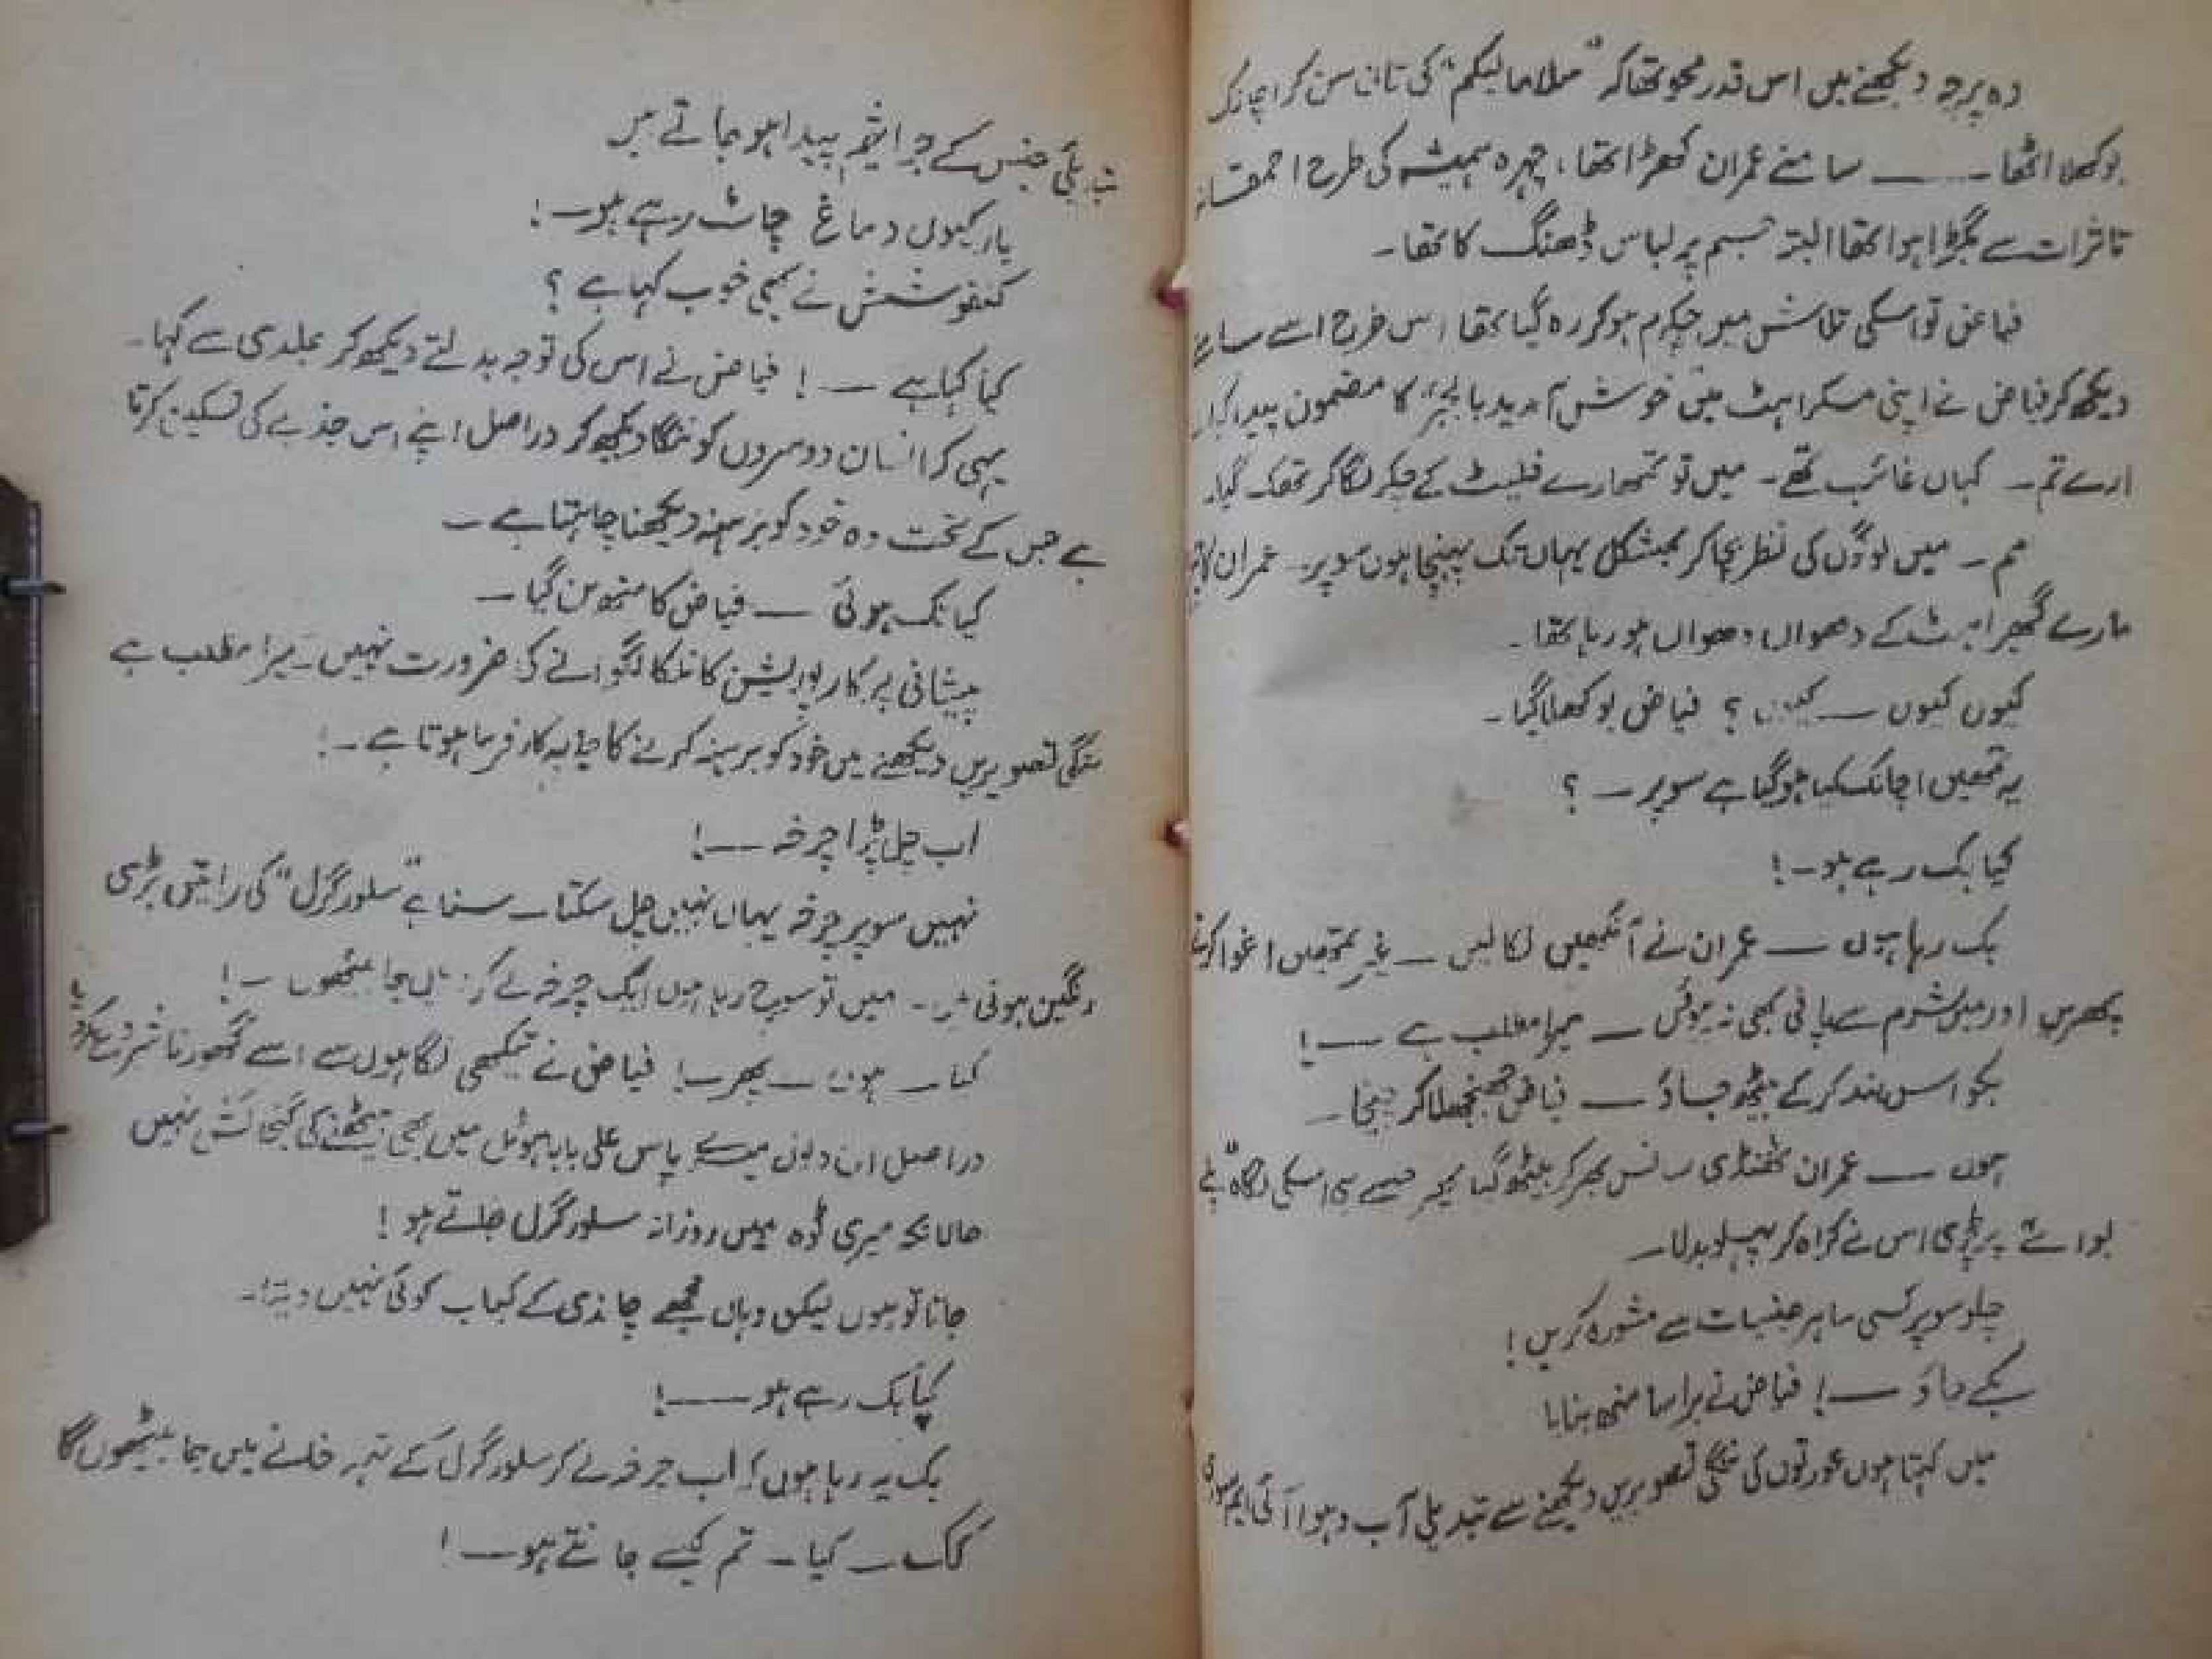 وہ پرچہ دیکھنے میں اس قدر محو تھا کہ "سلاما لیکم" کی تان سن کر اچانک
بوکھلا اٹھا ۔ ــــ سامنے عمران کھڑا تھا، چہرہ ہمیشہ کی طرح احمقانہ
تاثرات سے بگڑا ہوا تھا البتہ جسم پر لباس ڈھنگ کا تھا۔
فیاض تو اسکی تلاش میں چکرم ہو کر رہ گیا تھا اس طرح اسے سامنے
دیکھ کر فیاض نے اپنی مسکراہٹ میں خوش آمدید بالجبر کا مضمون پیدا کیا۔
ارے تم ۔ کہاں غائب تھے ۔ میں تو تمھارے فلیٹ کے چکر لگا کر تھک گیا۔
مم ۔ میں لوگوں کی نظر بچا کر بمشکل یہاں تک پہنچا ہوں سوپر ۔ عمران کا چہرہ
مارے گھبراہٹ کے دھواں دھواں ہو رہا تھا۔
کیوں کیوں ــ کیوں ؟ فیاض بوکھلا گیا ۔
یہ تمھیں اچانک کیا ہو گیا ہے سوپر ــ ؟
کیا بک رہے ہو ۔!
بک رہا ہوں ــ عمران نے آنکھیں نکالیں ــ تمھیں اغوا کرتے
پھریں اور میں شرم سے پانی بھی نہ ہوؤں ــ میرا مطلب ہے ــ !
بکواس بند کر کے بیٹھ جاؤ ــ فیاض جھنجھلا کر چیخا ۔
ہوں ــ عمران ٹھنڈی سانس بھر کر بیٹھ گیا پھر جیسے ہی اسکی نگاہ "پلے
بوائے" پر پڑی اس نے کراہ کر پہلو بدلا ۔
چلو سوپر کسی ماہر جنسیات سے مشورہ کریں !
بکے جاؤ ــ ! فیاض نے برا سا منھ بنایا
میں کہتا ہوں عورتوں کی ننگی تصویریں دیکھنے سے تبدیلی آب و ہوا آئی ایم سوری
تبدیلی جنس کے جراثیم پیدا ہو جاتے ہیں
یار کیوں دماغ چاٹ رہے ہو ۔!
کنفوشش نے بھی خوب کہا ہے ؟
کیا کہا ہے ــ ! فیاض نے اس کی توجہ بدلتے دیکھ کر جلدی سے کہا ۔
یہی کہ انسان دوسروں کو ننگا دیکھ کر دراصل اپنے اس جذبے کی تسکین کرتا
ہے جس کے تحت وہ خود کو برہنہ دیکھنا چاہتا ہے ۔
کیا بک ہوئی ــ فیاض کا منھ بن گیا ۔
پیشانی پر کارپوریشن کا نلکا لگوانے کی ضرورت نہیں ۔ میرا مطلب ہے
ننگی تصویریں دیکھنے میں خود کو برہنہ کرنے کا جذبہ کار فرما ہوتا ہے ۔!
اب چل پڑا چرخہ ــ !
نہیں سوپر چرخہ یہاں نہیں چل سکتا ۔ سنا ہے "سلور گرل" کی راتیں بڑی
رنگین ہوتی ہیں ۔ میں تو سوچ رہا ہوں ایک چرخہ لے کر وہاں جا بیٹھوں ۔ !
کیا ۔ ہوں ــ پھر ۔! فیاض نے تیکھی نگاہوں سے اسے گھورنا شروع کر دیا
دراصل ان دنوں میرے پاس علی بابا ہوٹل میں بھی بیٹھنے کی گنجائش نہیں
حالانکہ میری ٹوہ میں روزانہ سلور گرل جاتے ہو !
جاتا تو ہوں لیکن وہاں مجھے چاندی کے کباب کوئی نہیں دیتا ۔
کیا بک رہے ہو ــ !
بک یہ رہا ہوں کہ اب چرخہ لے کر سلور گرل کے تہہ خانے میں جا بیٹھوں گا
کک ــ کیا ۔ تم کیسے جانتے ہو ــ !